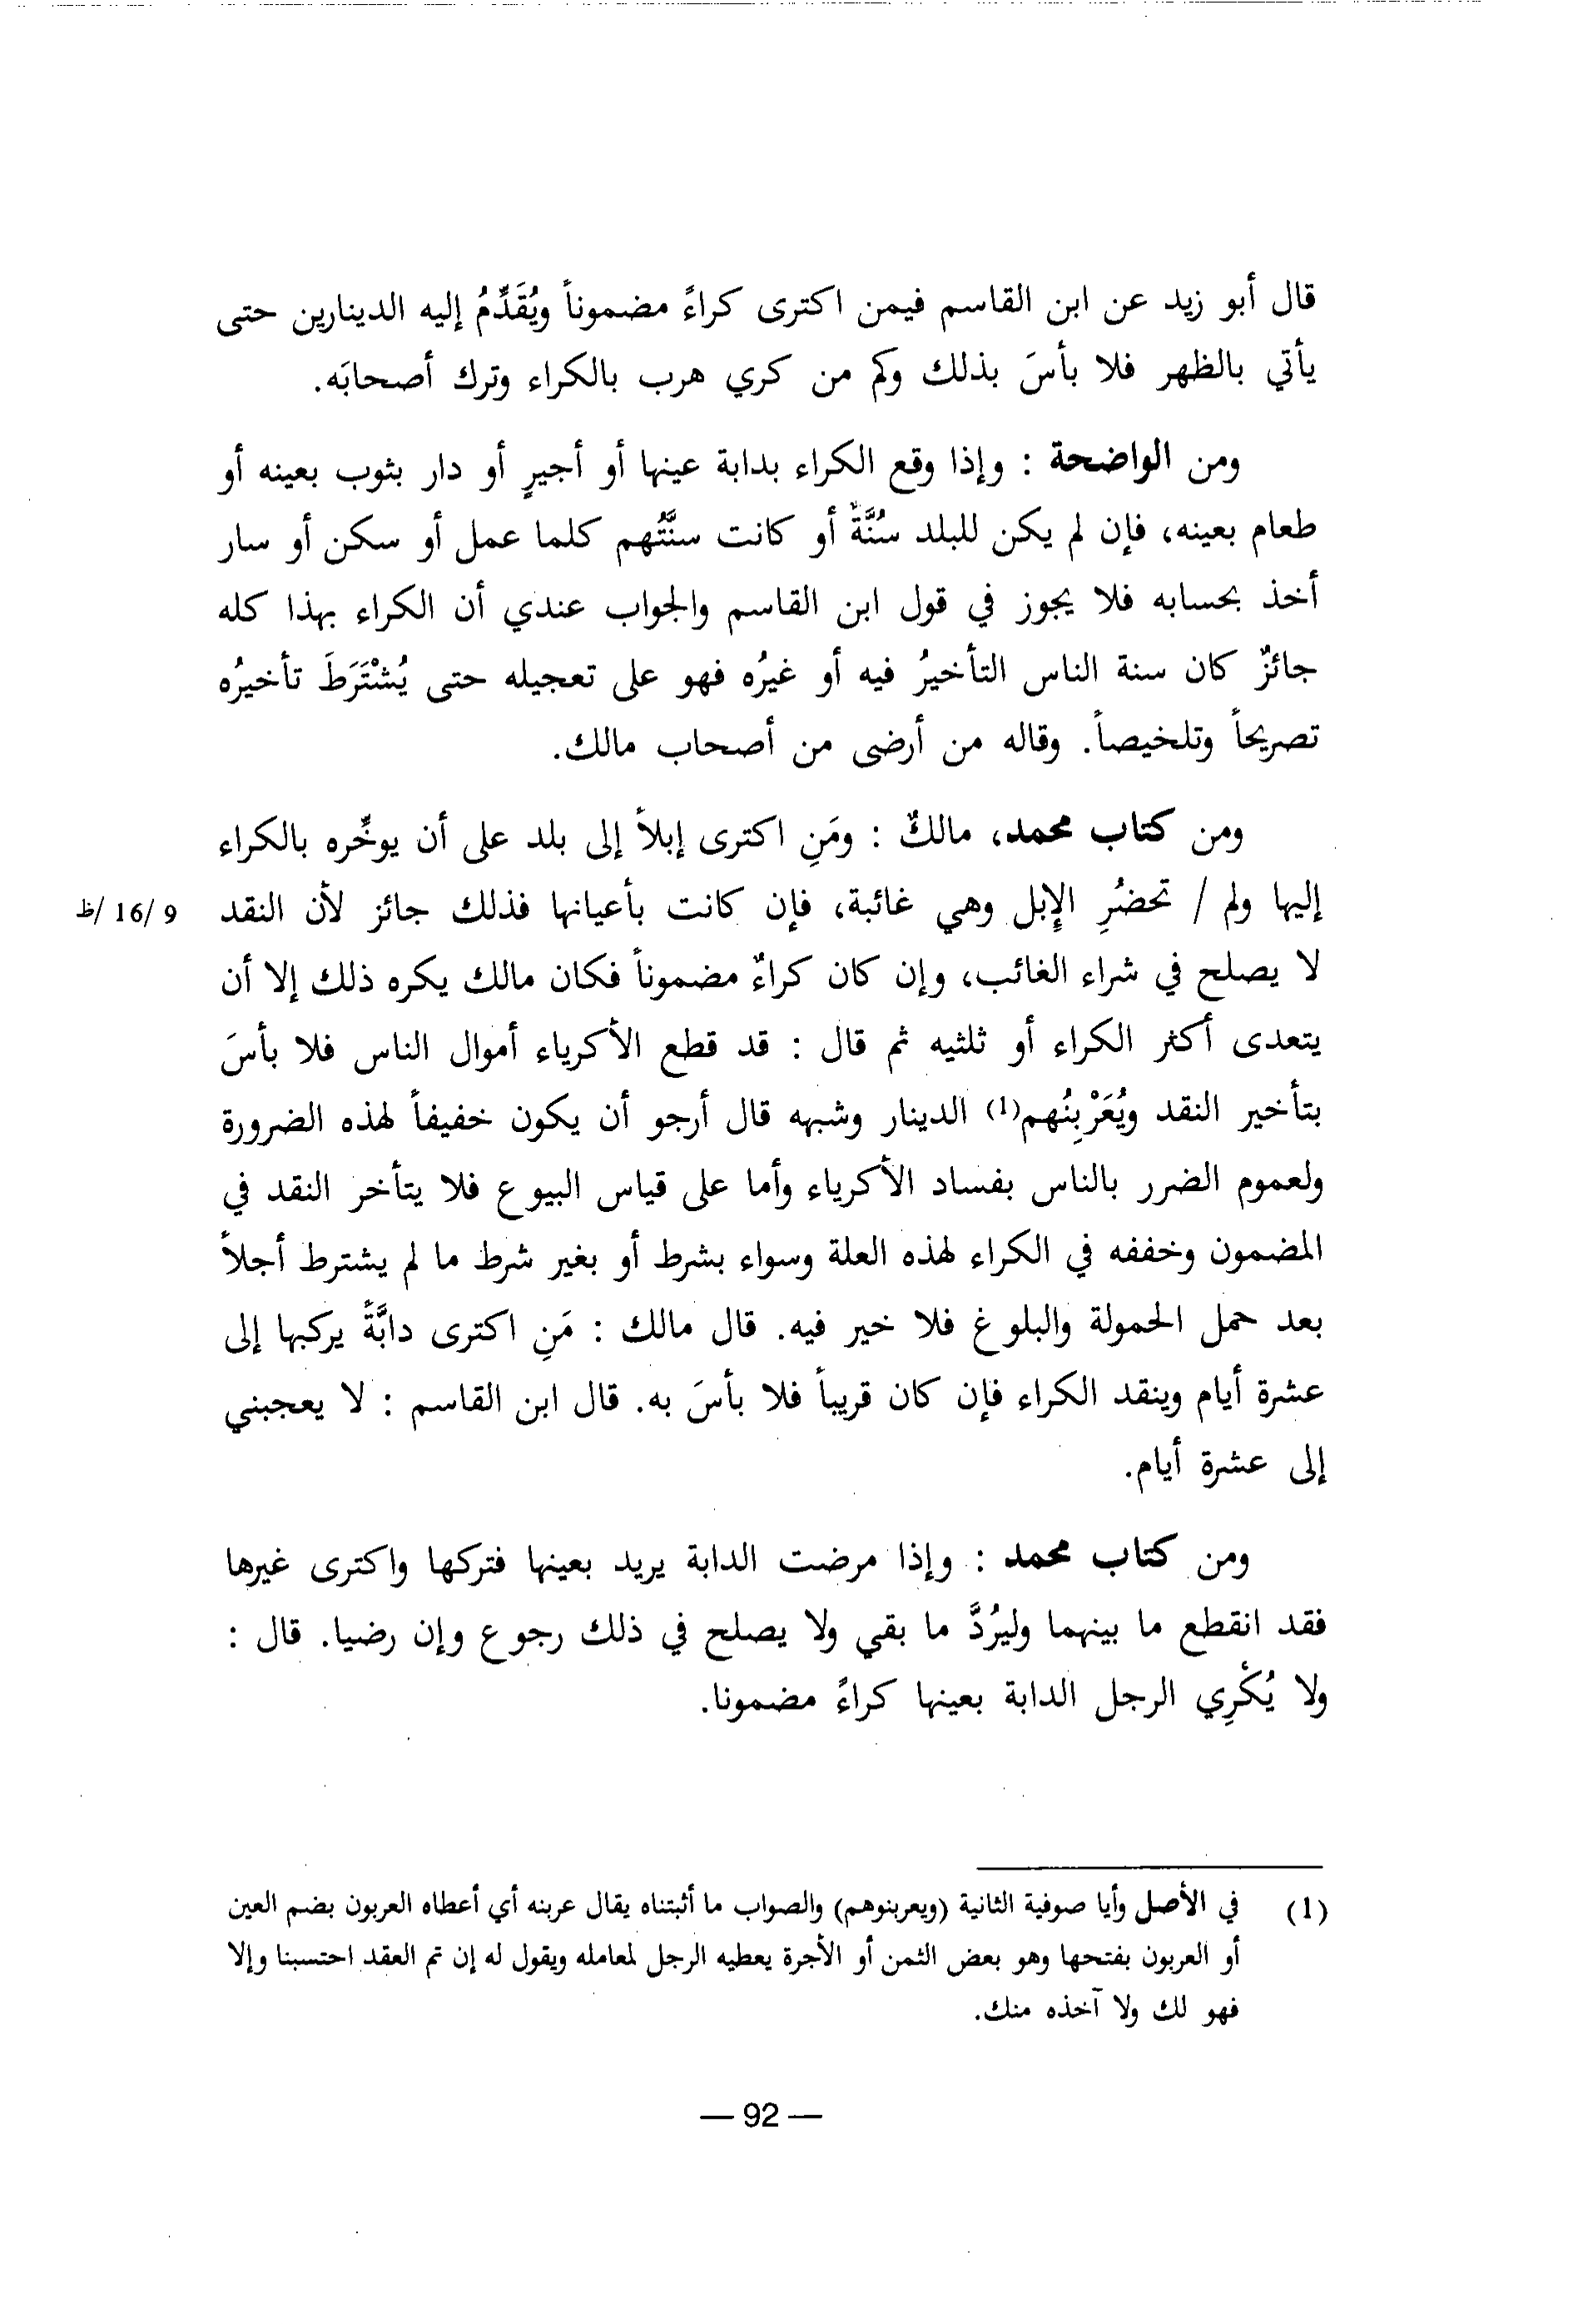 قال أبو زيد عن ابن القاسم فيمن اكترى كراءً مضموناً ويُقَدِّمُ إليه الدينارين حتى
يأتي بالظهر فلا بأسَ بذلك وكم من كري هرب بالكراء وترك أصحابَه.
ومن الواضحة : وإذا وقع الكراء بدابة عينها أو أجيرٍ أو دار بثوب بعينه أو
طعام بعينه، فإن لم يكن للبلد سُنَّةٌ أو كانت سنَّتُهم كلما عمل أو سكن أو سار
أخذ بحسابه فلا يجوز في قول ابن القاسم والجواب عندي أن الكراء بهذا كله
جائزٌ كان سنة الناس التأخيرُ فيه أو غيرُه فهو على تعجيله حتى يُشْتَرَطَ تأخيرُه
تصريحاً وتلخيصاً. وقاله من أرضى من أصحاب مالك.
ومن كتاب محمد، مالكٌ : ومَنِ اكترى إبلاً إلى بلد على أن يوخِّره بالكراء
إليها ولم / تحضُرِ الإبل وهي غائبة، فإن كانت بأعيانها فذلك جائز لأن النقد
9 /16 /ظ
لا يصلح في شراء الغائب، وإن كان كراءٌ مضموناً فكان مالك يكره ذلك إلا أن
يتعدى أكثر الكراء أو ثلثيه ثم قال : قد قطع الأكرياء أموال الناس فلا بأسَ
بتأخير النقد ويُعَرْبِنُهم(1) الدينار وشبهه قال أرجو أن يكون خفيفاً لهذه الضرورة
ولعموم الضرر بالناس بفساد الأكرياء وأما على قياس البيوع فلا يتأخر النقد في
المضمون وخففه في الكراء لهذه العلة وسواء بشرط أو بغير شرط ما لم يشترط أجلاً
بعد حمل الحمولة والبلوغ فلا خير فيه. قال مالك : مَنِ اكترى دابَّةً يركبها إلى
عشرة أيام وينقد الكراء فإن كان قريباً فلا بأسَ به. قال ابن القاسم : لا يعجبني
إلى عشرة أيام.
ومن كتاب محمد : وإذا مرضت الدابة يريد بعينها فتركها واكترى غيرها
فقد انقطع ما بينهما وليُرُدَّ ما بقي ولا يصلح في ذلك رجوع وإن رضيا. قال :
ولا يُكْرِي الرجل الدابة بعينها كراءً مضمونا.
(1) في الأصل وأيا صوفية الثانية (ويعربنوهم) والصواب ما أثبتناه يقال عربنه أي أعطاه العربون بضم العين
أو العربون بفتحها وهو بعض الثمن أو الأجرة يعطيه الرجل لمعامله ويقول له إن تم العقد احتسبنا وإلا
فهو لك ولا آخذه منك.
— 92 —